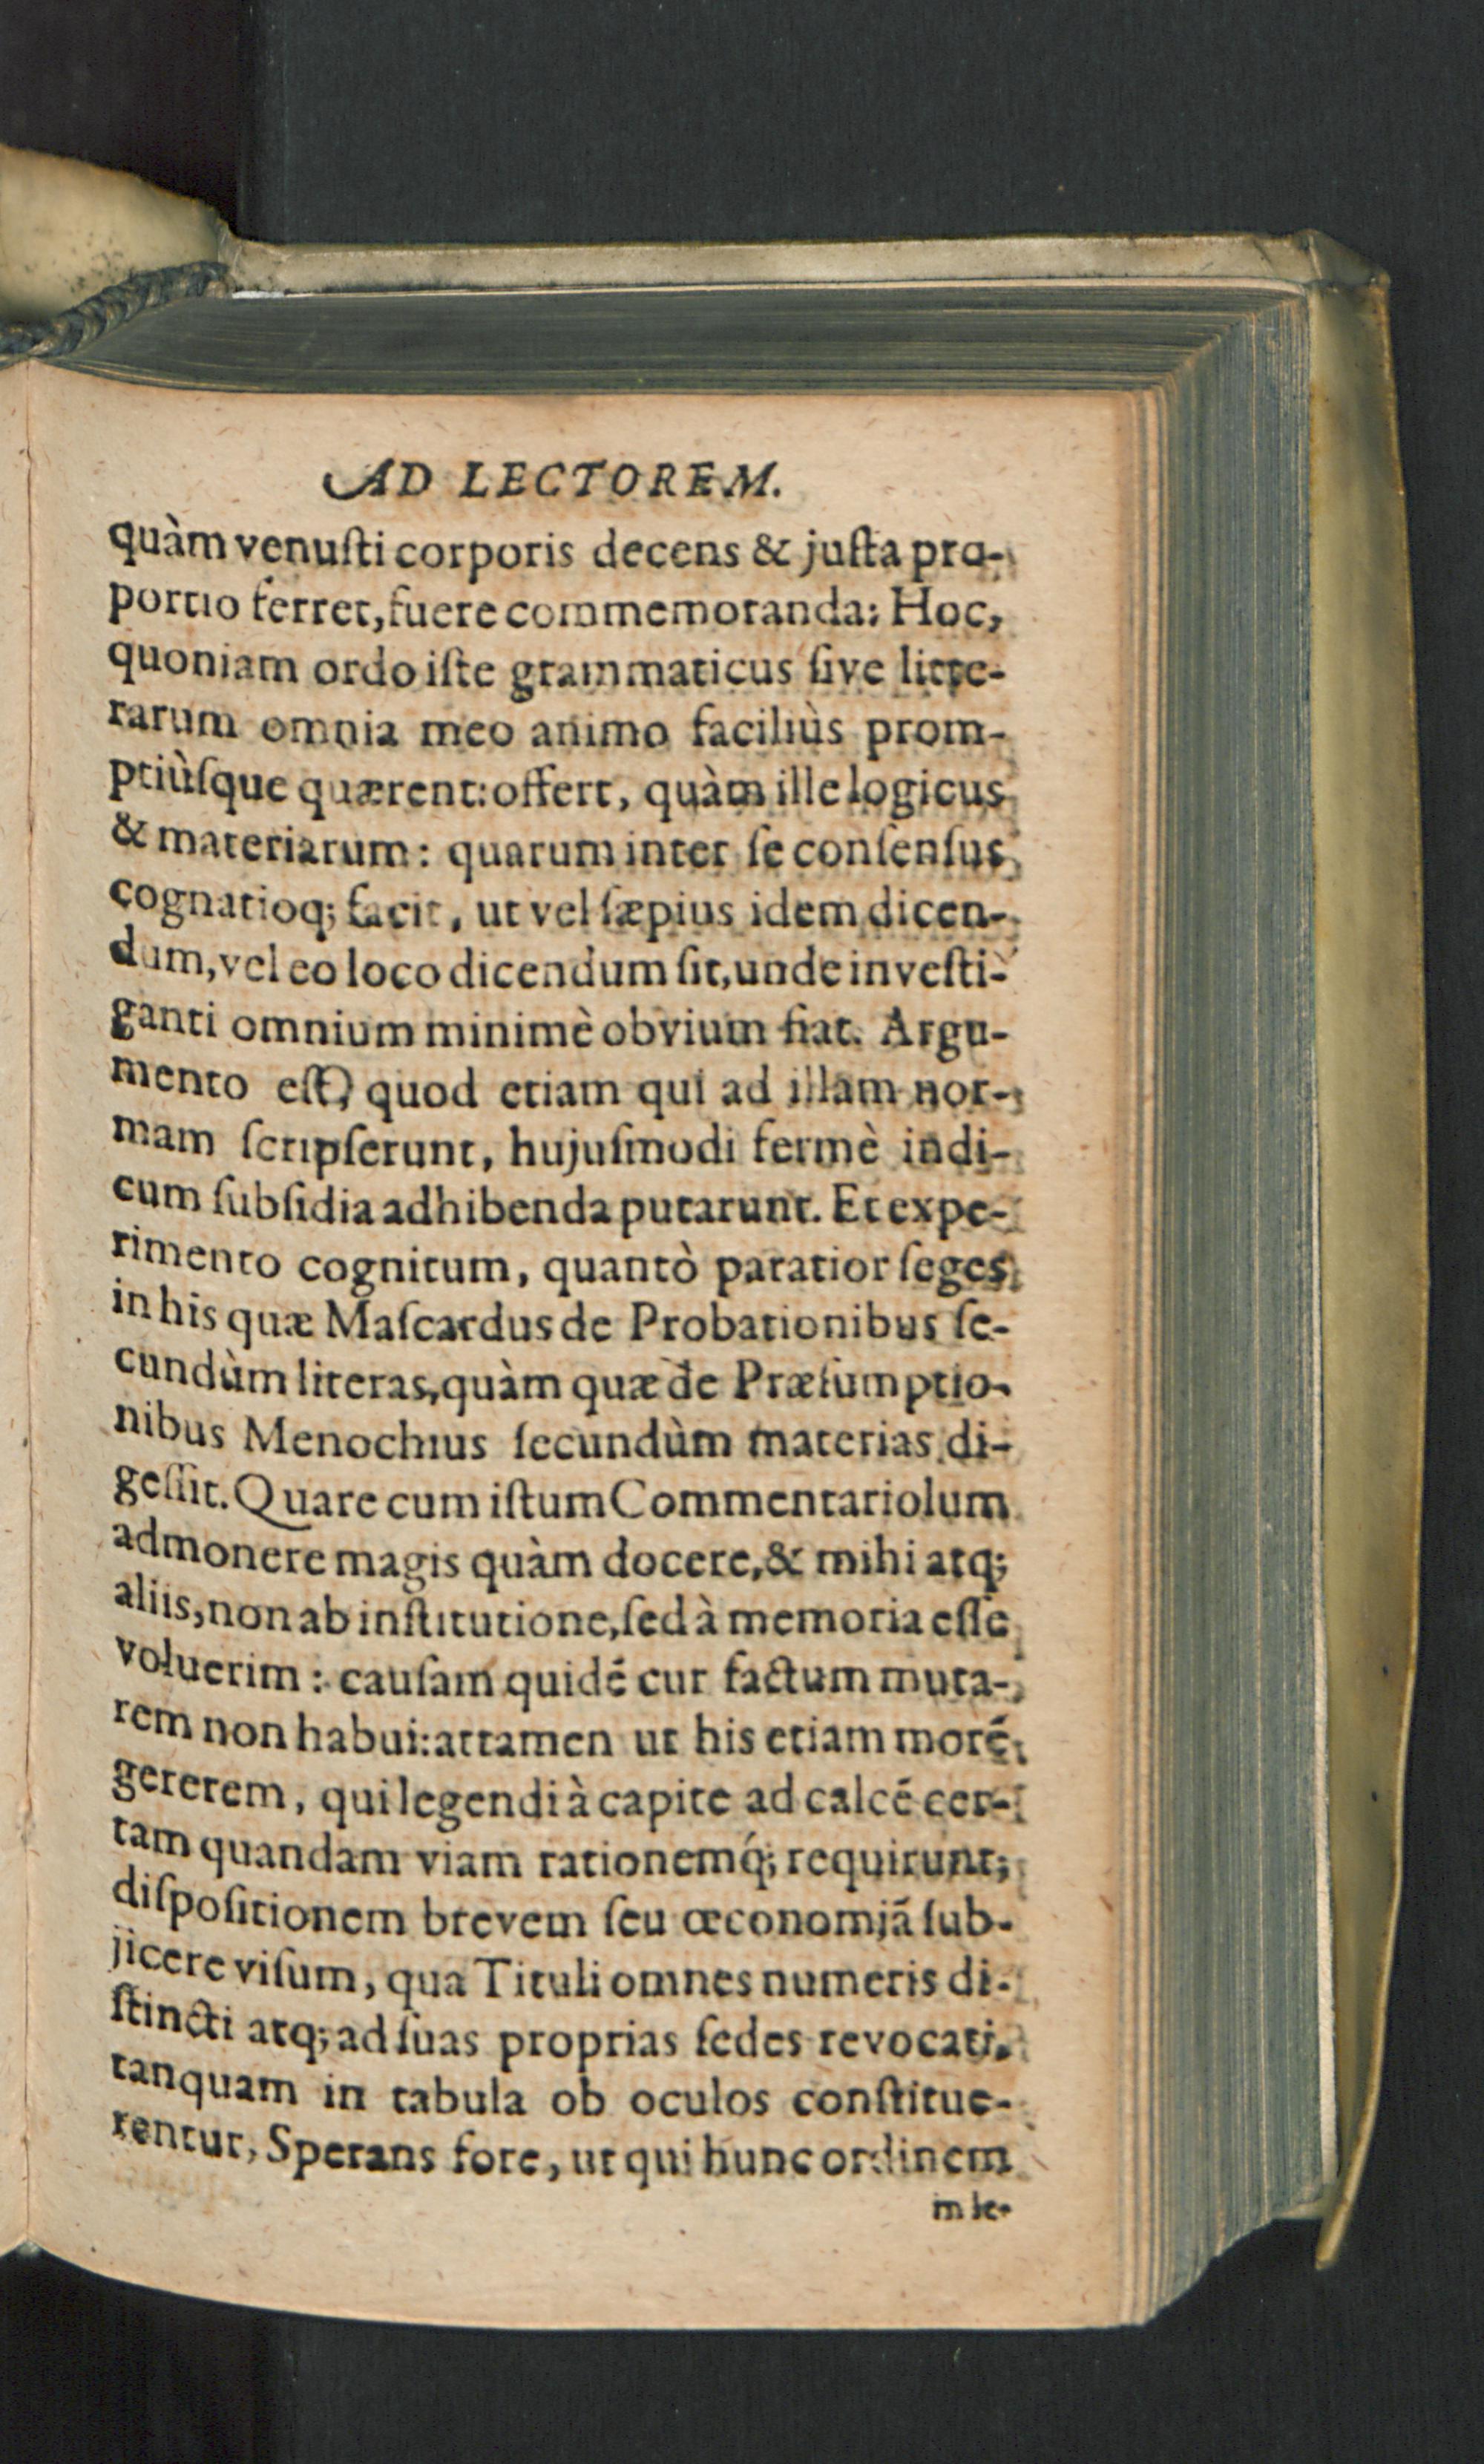 AD LECTOREM.
quàm venuſti corporis decens & juſta pro-
portio ferret, fuere commemoranda: Hoc,
quoniam ordo iſte grammaticus ſive litte-
rarum omnia meo animo faciliùs prom-
ptiùſque quærent: offert, quàm ille logicus
& materiarum: quarum inter ſe conſenſus
cognatioq; facit, ut vel ſæpius idem dicen-
dum, vel eo loco dicendum ſit, unde inveſti-
ganti omnium minimè obvium fiat. Argu-
mento eſt, quod etiam qui ad illam nor-
mam ſcripſerunt, hujuſmodi fermè indi-
cum ſubſidia adhibenda putarunt. Et expe-
rimento cognitum, quantò paratior ſeges
in his quæ Maſcardus de Probationibus ſe-
cundùm literas, quàm quæ de Præſumptio-
nibus Menochius ſecundùm materias di-
geſſit. Quare cum iſtum Commentariolum
admonere magis quàm docere, & mihi atq;
aliis, non ab inſtitutione, ſed à memoria eſſe
voluerim: cauſam quidẽ cur factum muta-
rem non habui: attamen ut his etiam morẽ
gererem, qui legendi à capite ad calcẽ cer-
tam quandam viam rationemq́; requirunt;
diſpoſitionem brevem ſeu œconomiã ſub-
jicere viſum, qua Tituli omnes numeris di-
ſtincti atq; ad ſuas proprias ſedes revocati,
tanquam in tabula ob oculos conſtitue-
rentur, Sperans fore, ut qui hunc ordinem
in le-